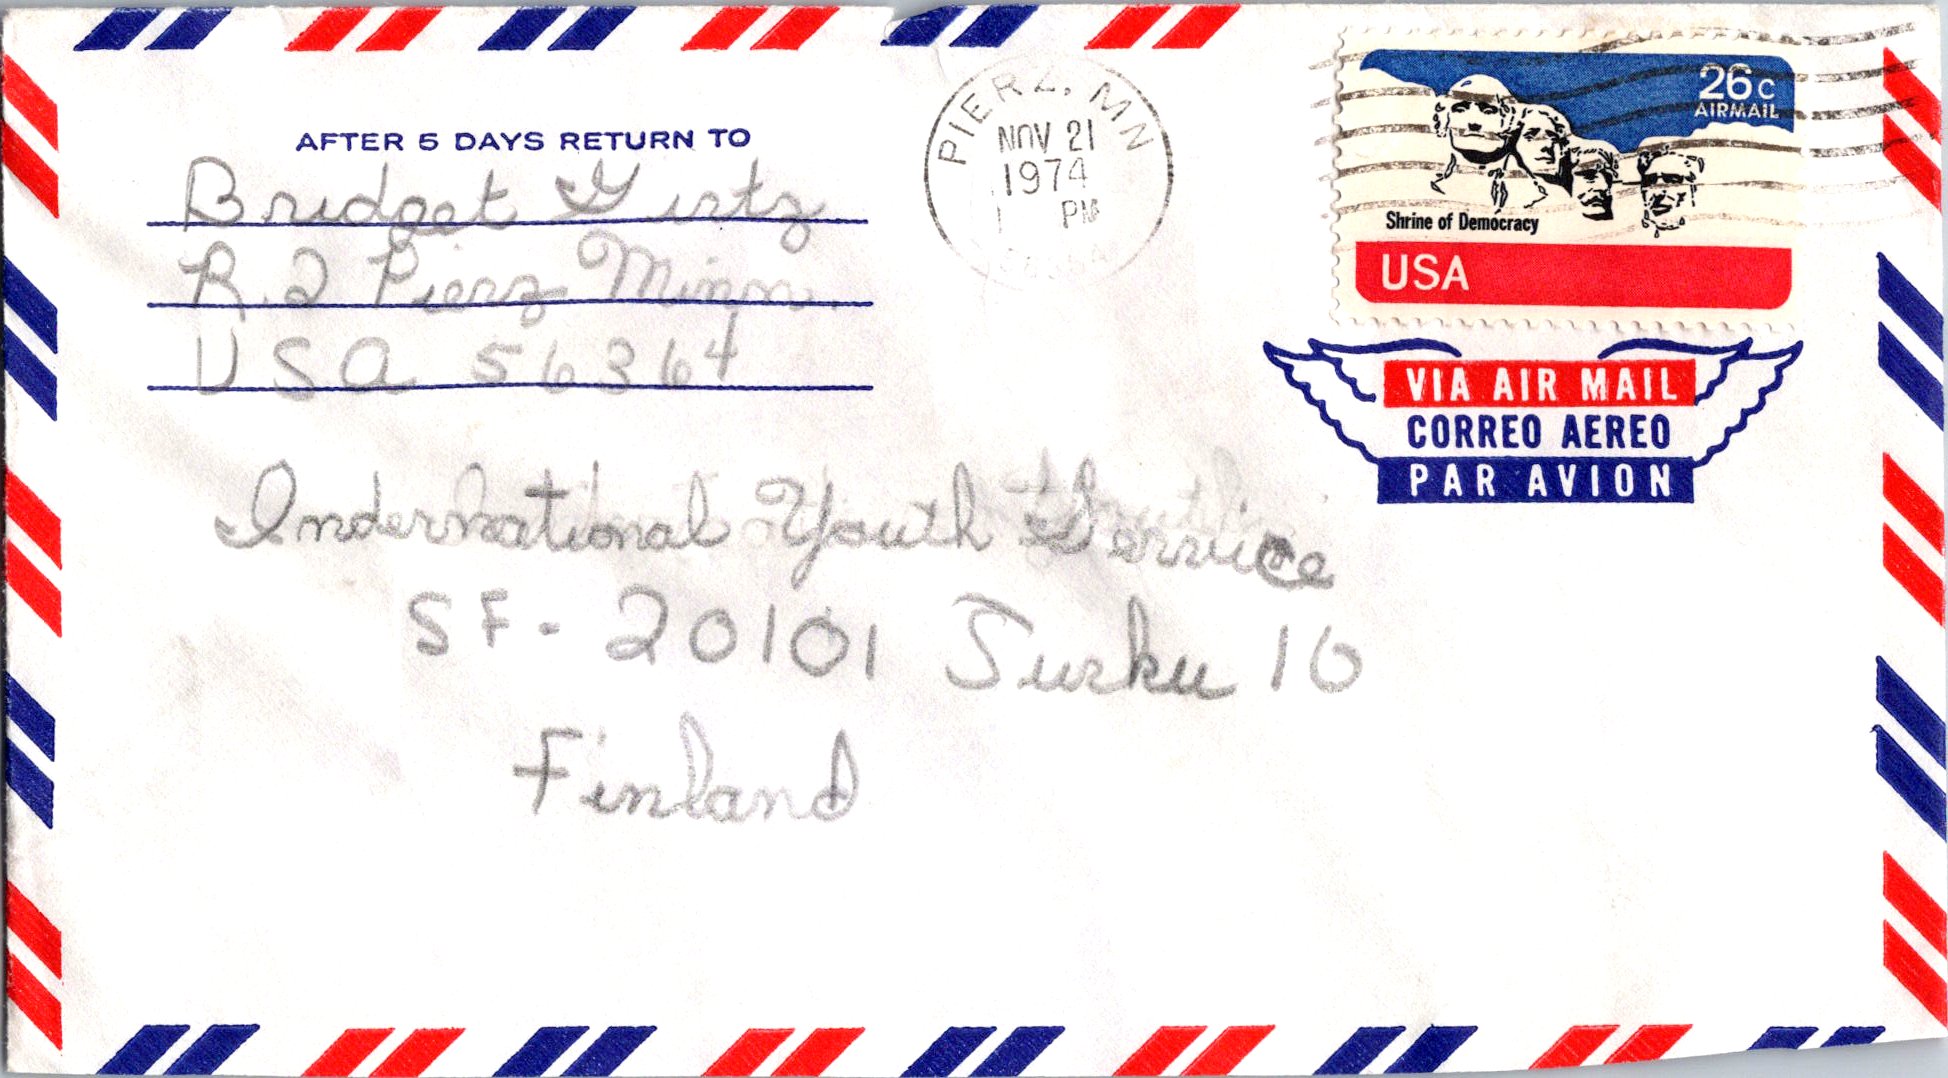 AFTER 5 DAYS RETURN TO
Bridget Girtz
R.2 Pierz Minn.
USA 56364
PIERZ, MN
NOV 21
1974
PM
26c
AIRMAIL
Shrine of Democracy
USA
VIA AIR MAIL
CORREO AEREO
PAR AVION
International Youth Service
SF-20101 Turku 10
Finland